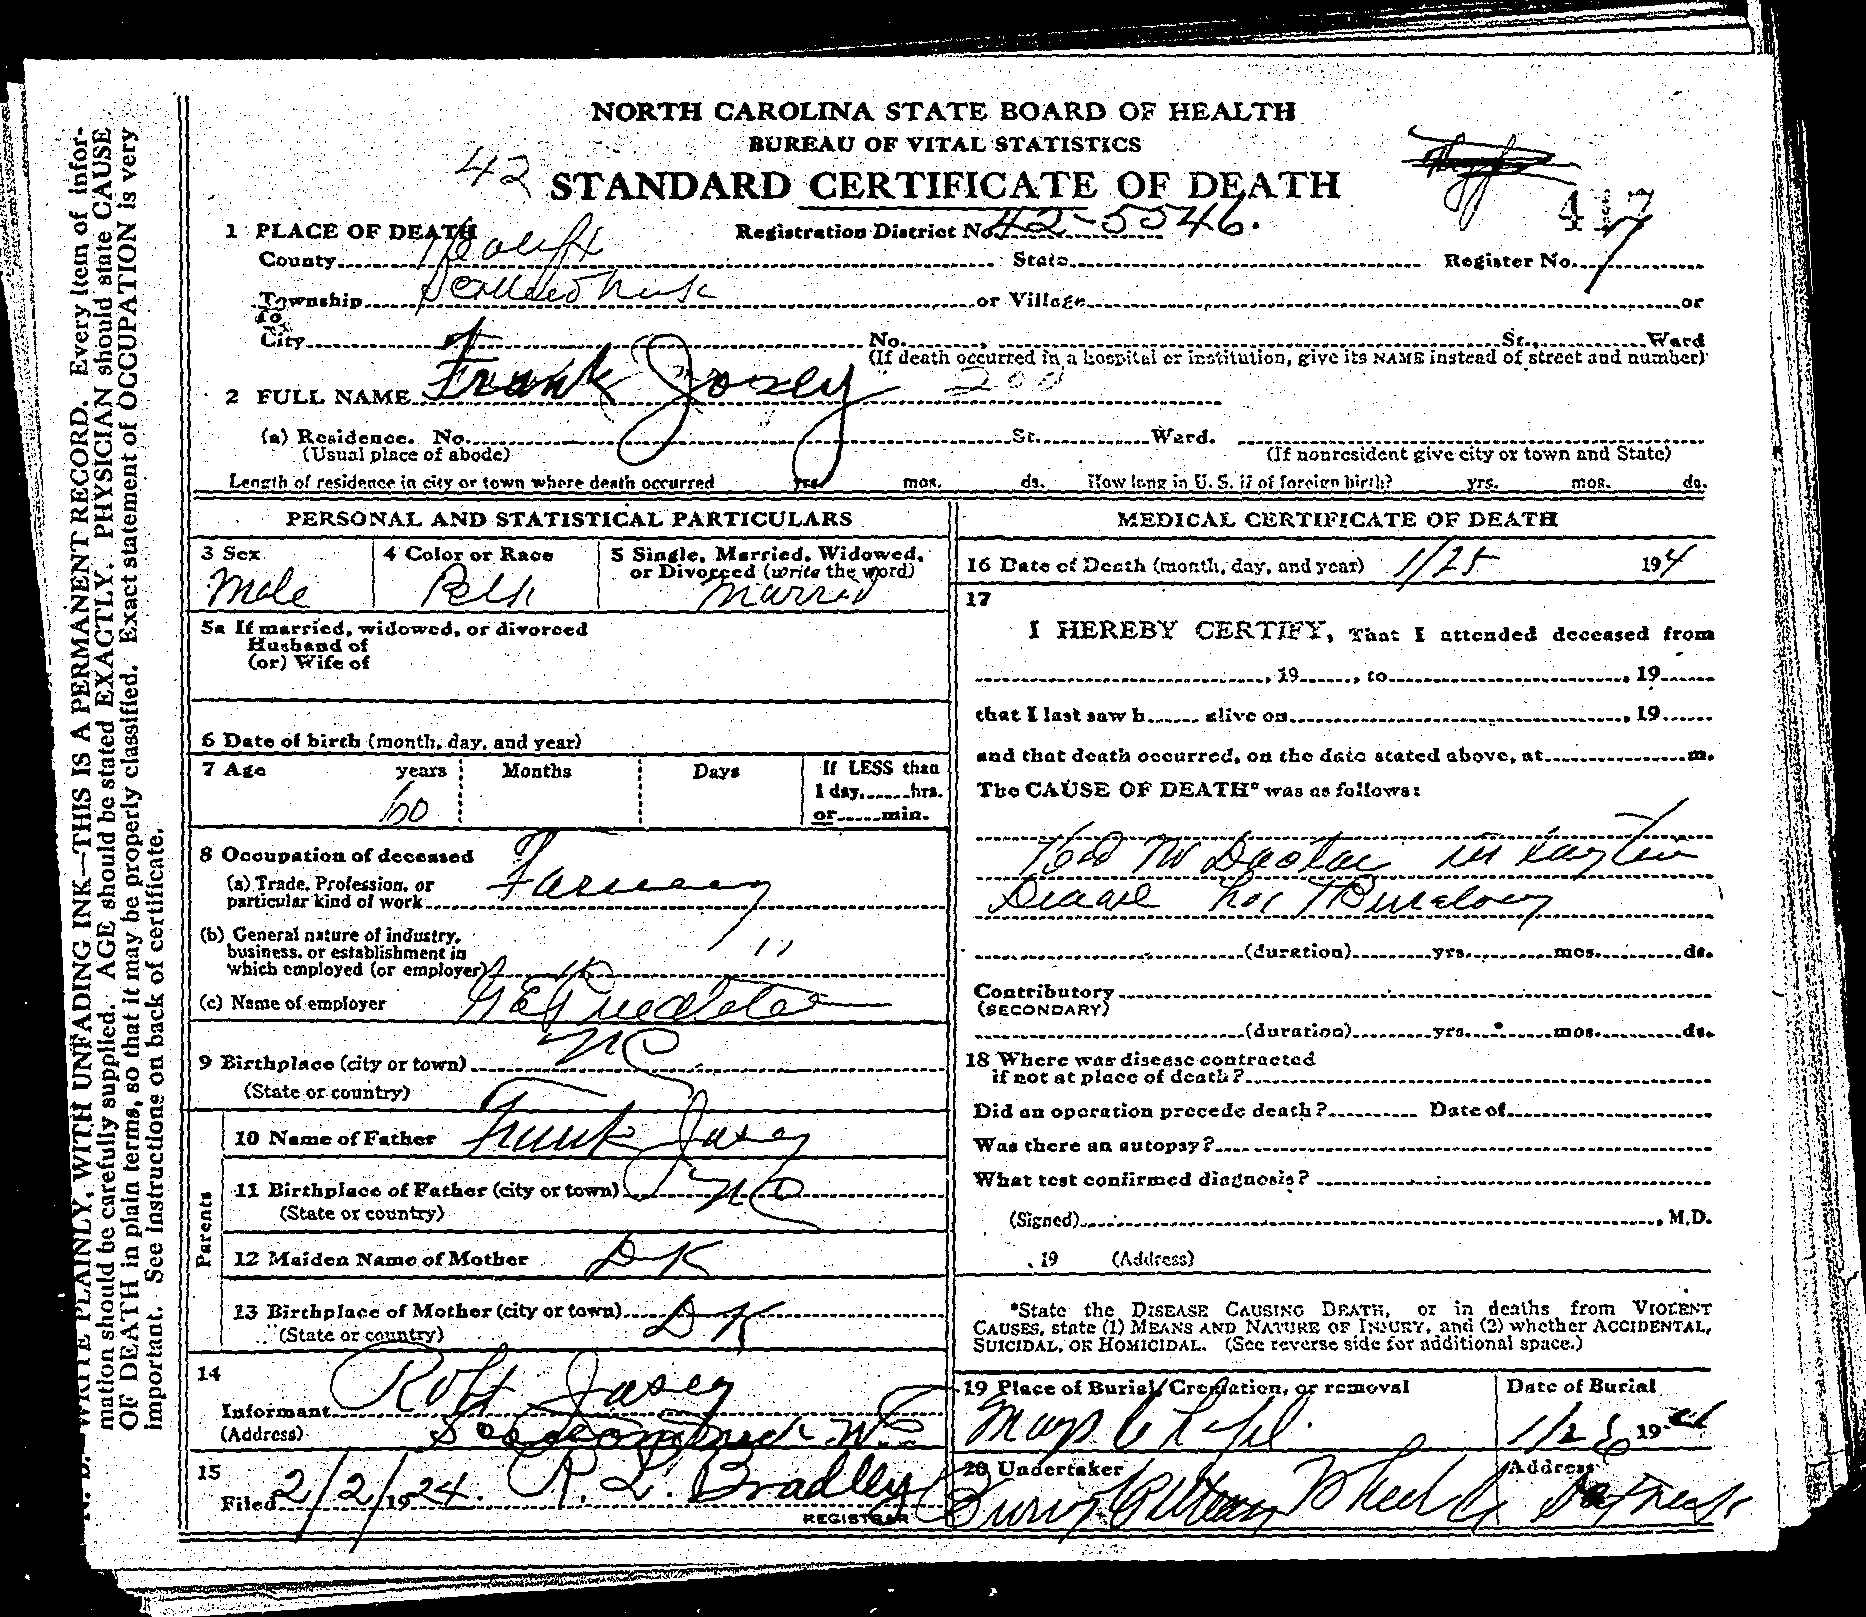 NORTH CAROLINA STATE BOARD OF HEALTH
BUREAU OF VITAL STATISTICS
42 STANDARD CERTIFICATE OF DEATH
417
1 PLACE OF DEATH Registration District No. 42-5546.
County Halifx State Register No. 7
Township Scotland Neck or Village or
City No. , St., Ward
(If death occurred in a hospital or institution, give its NAME instead of street and number)
2 FULL NAME Frank Josey 200
(a) Residence. No. St. Ward.
(Usual place of abode) (If nonresident give city or town and State)
Length of residence in city or town where death occurred yrs. mos. ds. How long in U. S. if of foreign birth? yrs. mos. ds.
PERSONAL AND STATISTICAL PARTICULARS
3 Sex 4 Color or Race 5 Single, Married, Widowed, or Divorced (write the word)
Male Blk Married
5a If married, widowed, or divorced
Husband of
(or) Wife of
6 Date of birth (month, day, and year)
7 Age years Months Days If LESS than
1 day, hrs.
60 or min.
8 Occupation of deceased
(a) Trade, Profession, or
particular kind of work Farming
(b) General nature of industry,
business, or establishment in
which employed (or employer) "
(c) Name of employer
9 Birthplace (city or town) NC
(State or country)
Parents
10 Name of Father Frank Josey
11 Birthplace of Father (city or town) NC
(State or country)
12 Maiden Name of Mother DK
13 Birthplace of Mother (city or town) DK
(State or country)
14
Informant Robt Josey
(Address) Scotland Neck N.C.
15
Filed 2/2/1924. R. L. Bradley
REGISTRAR
MEDICAL CERTIFICATE OF DEATH
16 Date of Death (month, day, and year) 1/25 194
17
I HEREBY CERTIFY, That I attended deceased from
, 19 , to , 19
that I last saw h alive on , 19
and that death occurred, on the date stated above, at m.
The CAUSE OF DEATH* was as follows:
Had no Doctor
(duration) yrs. mos. ds.
Contributory
(SECONDARY)
(duration) yrs. mos. ds.
18 Where was disease contracted
if not at place of death?
Did an operation precede death? Date of
Was there an autopsy?
What test confirmed diagnosis?
(Signed) , M.D.
, 19 (Address)
*State the DISEASE CAUSING DEATH, or in deaths from VIOLENT
CAUSES, state (1) MEANS AND NATURE OF INJURY, and (2) whether ACCIDENTAL,
SUICIDAL, OR HOMICIDAL. (See reverse side for additional space.)
19 Place of Burial, Cremation, or removal Date of Burial
1/26 1924
20 Undertaker Address
N. B.—WRITE PLAINLY, WITH UNFADING INK—THIS IS A PERMANENT RECORD. Every item of infor-
mation should be carefully supplied. AGE should be stated EXACTLY. PHYSICIAN should state CAUSE
OF DEATH in plain terms, so that it may be properly classified. Exact statement of OCCUPATION is very
important. See instructions on back of certificate.